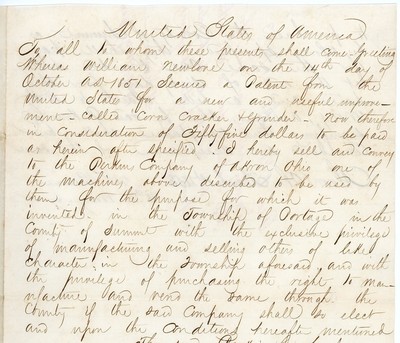 United States of America
To all to whom these presents shall come Greeting
Whereas William Newlove on the 14th day of
October AD 1851 Secured a Patent from the
United States for a new and useful improve-
ment - called Corn Cracker & Grinder - Now therefore
in Consideration of Fifty five dollars to be paid
as herein after specified. I hereby sell and Convey
to the Perkins Company of Akron Ohio one of
the machines above described to be used by
them for the purpose for which it was
invented. in the Township of Portage in the
County of Summit with the exclusive privilege
of manufacturing and selling others of like
character, in the Township aforesaid, and with
the privilege of purchasing the right to man-
ufacture and vend the same through the
County if the said Company shall so elect
and upon the Conditions hereafter mentioned